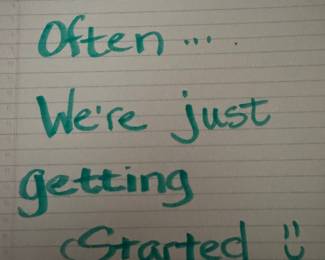 Often ...
We're just
getting
Started :)